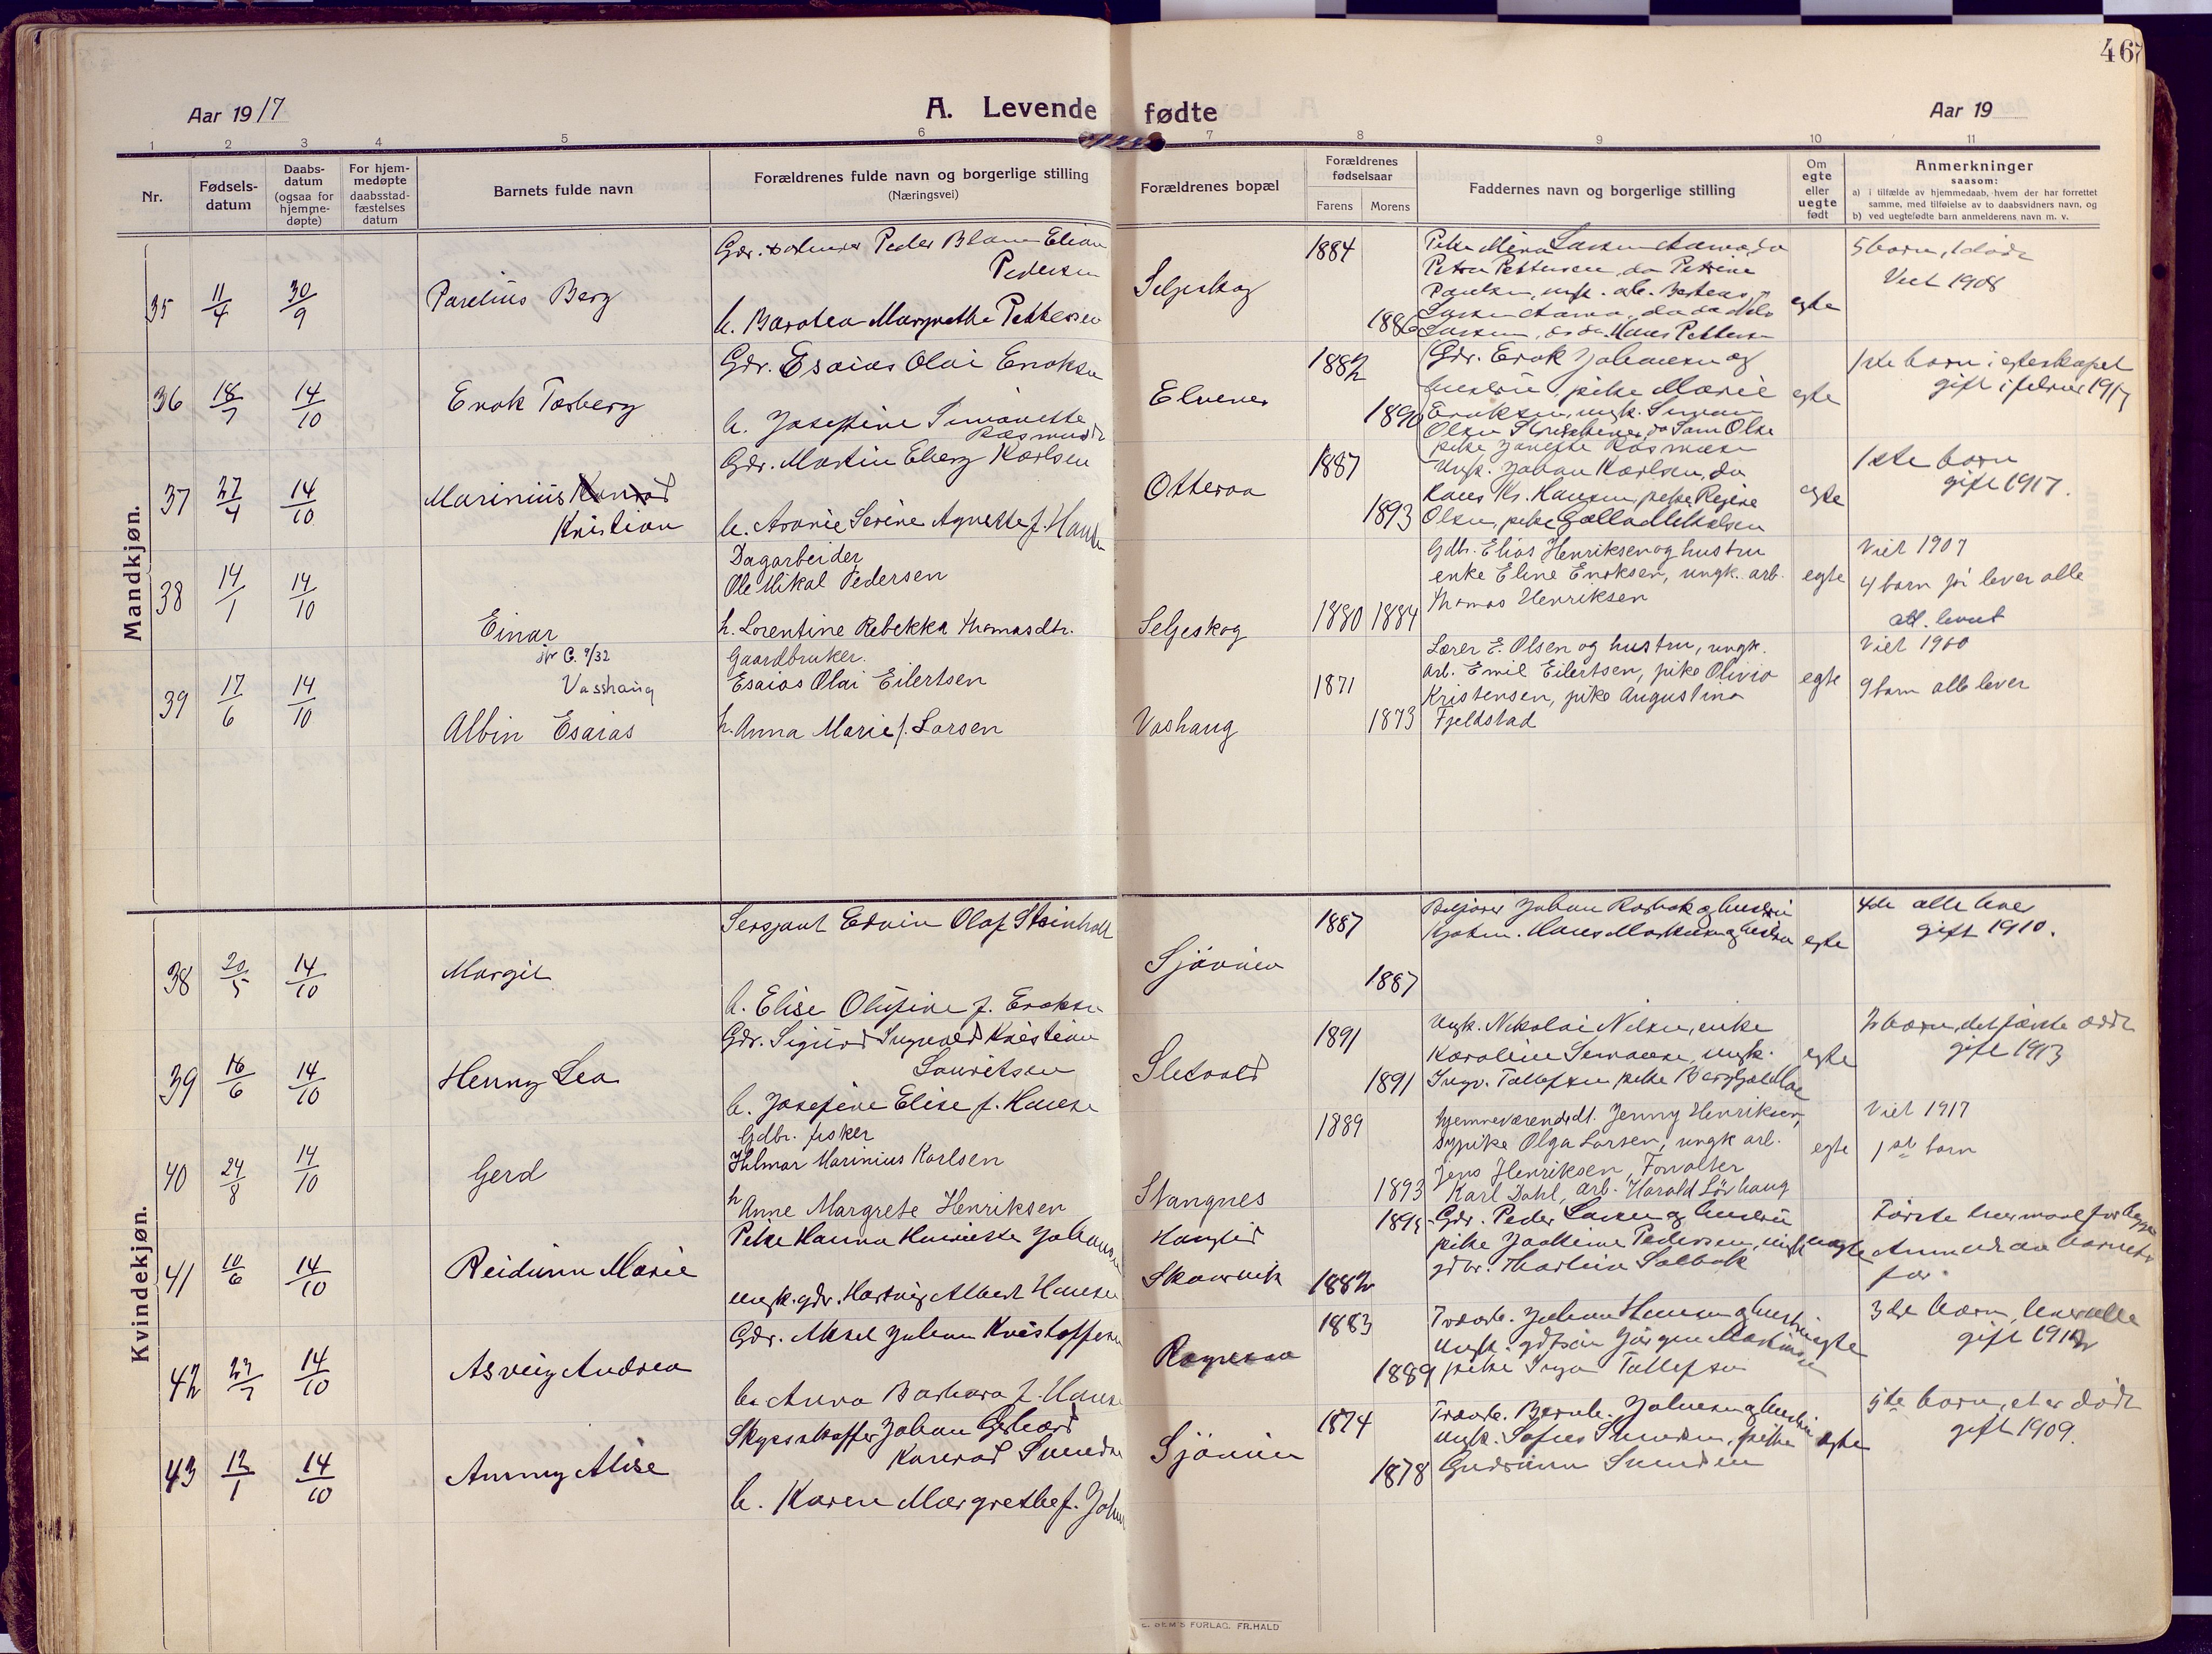 467
Aar 1917
A. Levende fødte
Aar 19
1 2 3 4 5 6 7 8 9 10 11
Nr.
Fødsels-datum
Daabs-datum (ogsaa for hjemme-døpte)
For hjem-medøpte daabsstad-fæstelses datum
Barnets fulde navn
Forældrenes fulde navn og borgerlige stilling
(Næringsvei)
Forældrenes bopæl
Forældrenes fødselsaar
Farens Morens
Faddernes navn og borgerlige stilling
Om egte eller uegte født
Anmerkninger
saasom:
a) i tilfælde av hjemmedaab, hvem der har forrettet samme, med tilføielse av to daabsvidners navn, og
b) ved uegtefødte barn anmelderens navn m. v.
Mandkjøn.
35 11/4 30/9 Parelius Berg
Peder Elian
Pedersen
h. Barolea Margrethe Pettersen
Seljeskog
1884
1886
Petra Pettersen, do Petrine
egte
5 barn, 1 død
Viet 1908
36 18/7 14/10 Enok Torberg
Gdr. Esaias Olai Enoksen
h. Josefine Simonette
Rasmusdt
Elvenes
1882
1890
Gdr. Enok Johansen og
hustru, pike Marie
Enoksen, ungk. Simon
egte
1ste barn i egteskapet
gift i februar 1917
37 27/4 14/10 Marinius Konrad
Kristian
Gdr. Martin Eberg Karlsen
h. Aronie Serine Agnette f. Hansen
Otteraa
1887
1893
Ungk. Johan Karlsen, do
Hans Kr. Hansen, pike Regine
Olsen, pike
egte
1ste barn
gift 1917.
38 14/1 14/10 Einar
Dagarbeider
Ole Mikal Pedersen
h. Lorentine Rebekka Thomasdtr.
Seljeskog
1880 1884
Gdbr. Elias Henriksen og hustru
enke Eline Enoksen, ungk. arb.
Thomas Henriksen
egte
Viet 1907
4 barn før lever alle
39 17/6 14/10
jfr C. 9/32
Vasshaug
Albin Esaias
Gaardbruker.
Esaias Olai Eilertsen
h. Anna Marie f. Larsen
Vashaug
1871
1873
Lærer E. Olsen og hustru, ungk.
arb. Emil Eilertsen, pike Olivia
Kristensen, pike Augustina
Fjeldstad
egte
Viet 1900
9 barn alle lever
Kvindekjøn.
38 20/5 14/10 Margit
Sersjant Edvin Olaf Steinholt
h. Elise Olufine f. Enoksen
Sjøveien
1887
1887
egte
4de alle lever
gift 1910.
39 16/6 14/10 Henny Lea
Gdr. Sigurd Ingvald Kristian
Lauritsen
h. Josefine Elise f. Hansen
Sletvold
1891
1891
Ungk. Nikolai Nilsen, enke
Karoline Simonsen, ungk.
Ingv. Tollefsen pike
egte
2 barn, det første død
gift 1913
40 24/8 14/10 Gerd
Gdbr. fisker
Hilmar Marinius Karlsen
h. Anne Margrete Henriksen
Stangnes
1889
1893
hjemmeværende dt. Jenny Henriksen,
sypike Olga Larsen, ungk arb.
Jens Henriksen, Forvalter
Karl Dahl, arb. Harald Løvhaug
egte
Viet 1917
1ste barn
41 10/6 14/10 Reidunn Marie
Pike Hanna Henriette Johansen
ungk. gdr. Hartvig Albert Hansen
Skarvik
1895
1882
Gdr. Peder Larsen og hustru
pike Pedersen, ungk
gdbr. Martin Solbak
uegte
Første leiermaal for begge
Anmeldt av barnets
far.
42 27/7 14/10 Asveig Andrea
Gdr. Aksel Johan Kristoffersen
h. Anna Barbara f. Hansen
1883
1889
Johan Hansen og hustru
pike Inga Tollefsen
egte
3de barn, lever alle
gift 1912
43 12/1 14/10 Ammy Alise
Skysskaffer Johan Gerhard
Konrad
h. Karen Margrethe f. Joh
Sjøveien
1874
1878
egte
5te barn, et er død
gift 1909.
FORLAG. FR.HALD